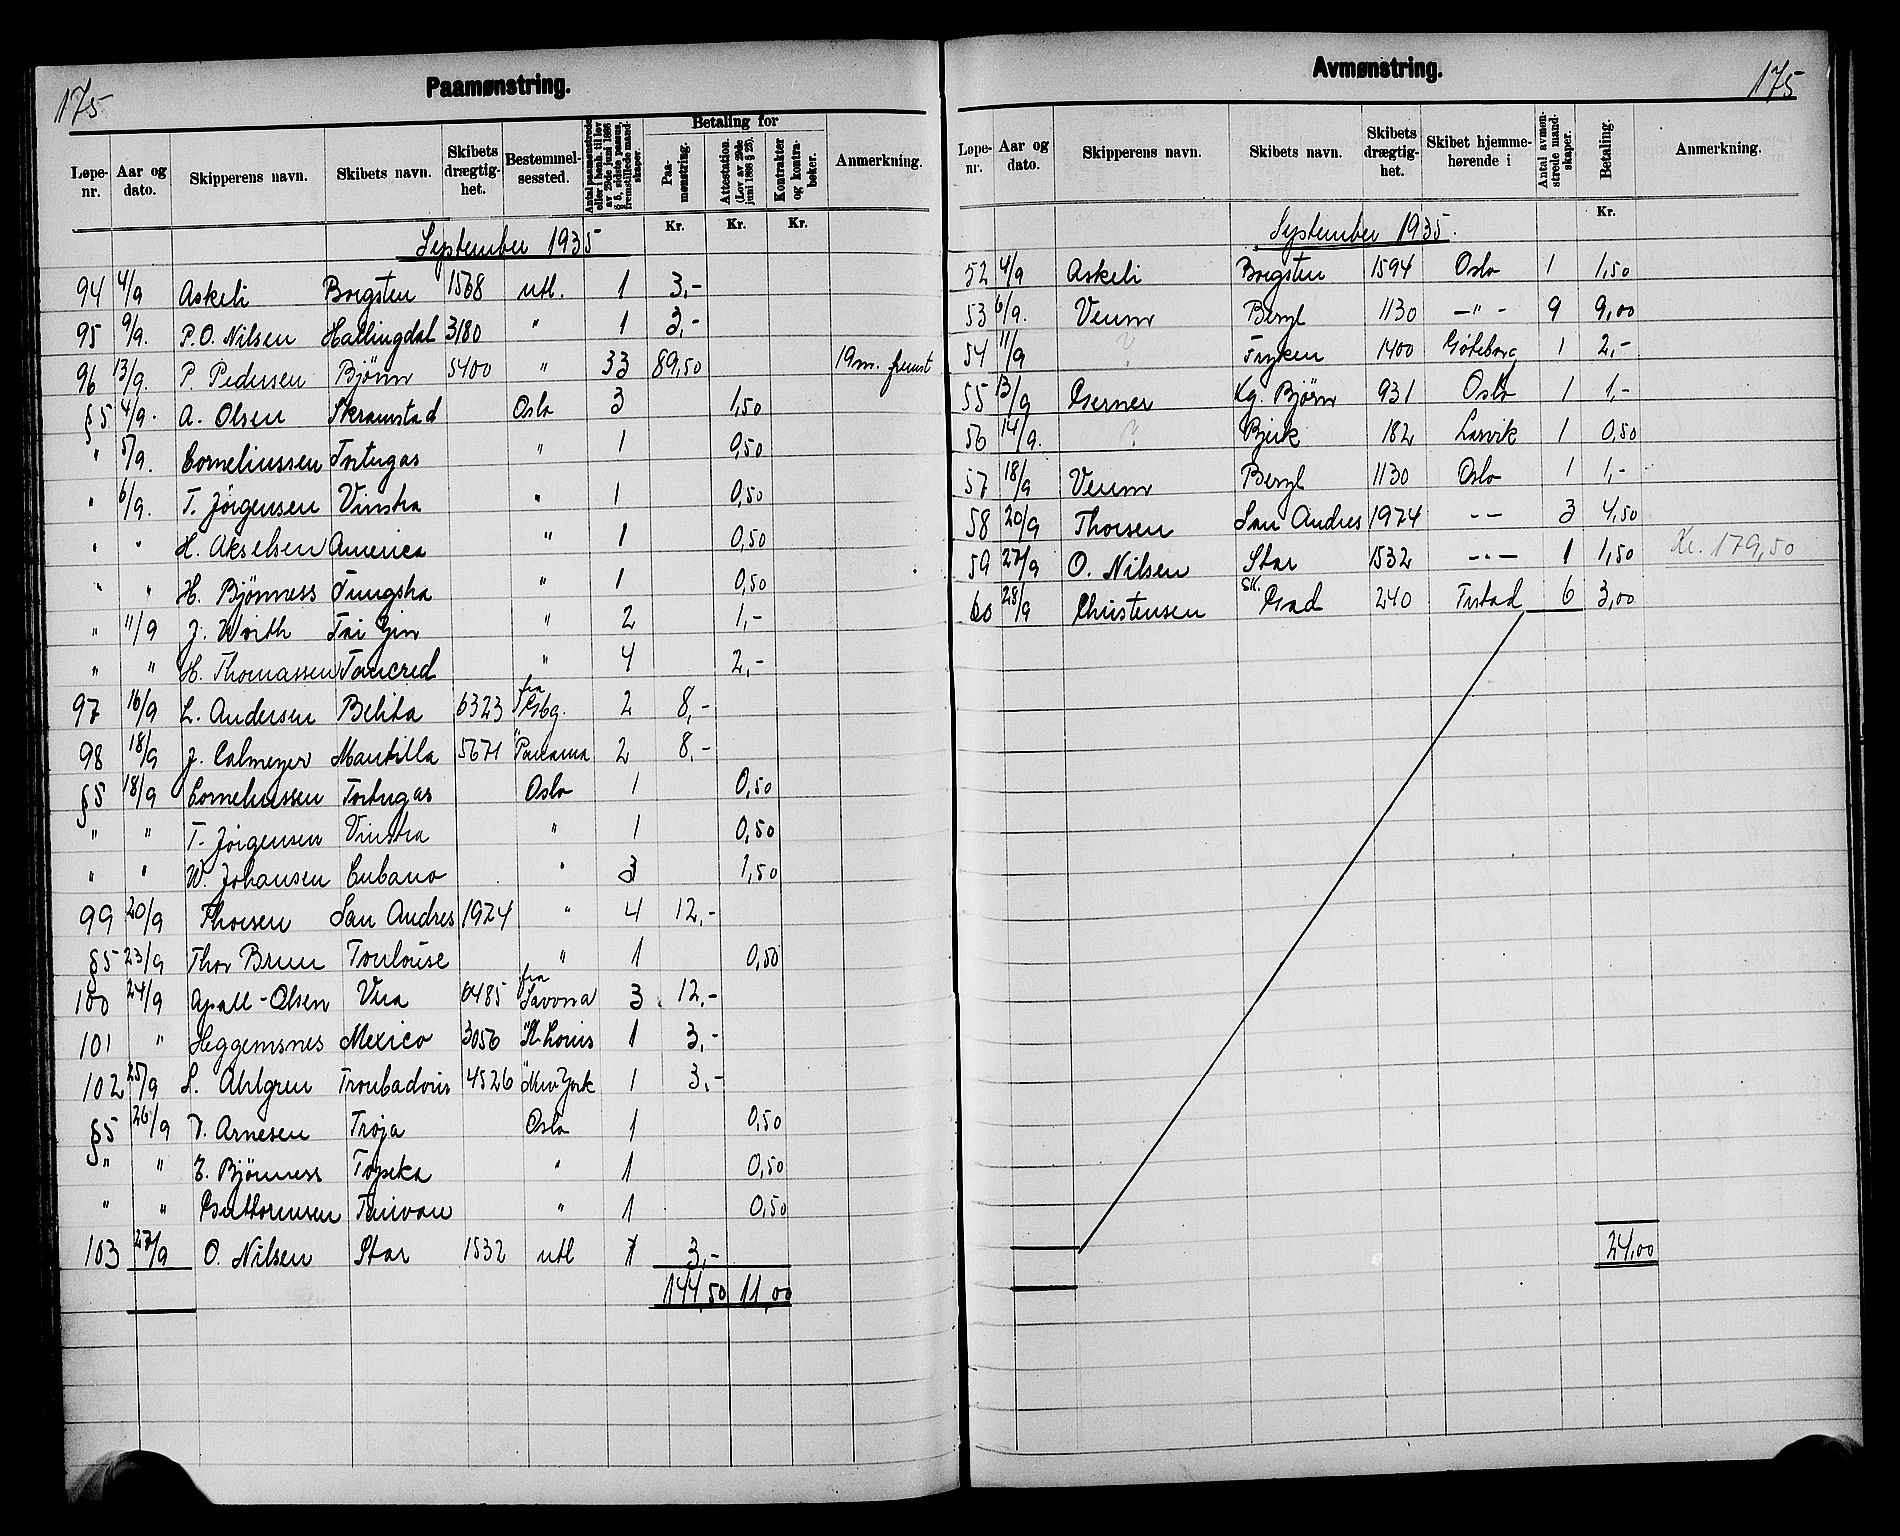 175
Paamønstring.
Løpe-nr. | Aar og dato. | Skipperens navn. | Skibets navn. | Skibets drægtig-het. | Bestemmel-sessted. | Antal paamønstrede eller i henh. til lov av 29de juni 1888 § 5, sidste passus, fremstillede mand-skaper. | Betaling for | Paa-mønstring. | Attestation. (Lov av 29de juni 1888 § 23). | Kontrakter og kontra-bøker. | Anmerkning.
Kr. | Kr. | Kr.
September 1935
94 4/9 Askeli Borgsten 1568 utl. 1 3,-
95 9/9. P.O. Nilsen Hallingdal 3180 " 1 3,-
96 13/9. P. Pedersen Bjørnr 5400 " 33 89,50 19 m. fremst
§5 4/9. A. Olsen Skramstad Oslo 3 1,50
" 5/9. Corneliussen Tortugas " 1 0,50
" 6/9. T. Jörgensen Vinstra " 1 0,50
" " H. Akselsen America " 1 0,50
" " H. Bjönness Tungsha " 1 0,50
" 11/9 J. Worth Tai Yin " 2 1,-
" " H. Thomassen Tancred " 4 2,-
97 16/9 L. Andersen Belita 6323 fra Gbg. 2 8,-
98 18/9 J. Calmeyer Mantilla 5671 " Panama 2 8,-
§5 18/9 Corneliussen Tortugas Oslo 1 0,50
" " T. Jörgensen Vinstra " 1 0,50
" " W. Johansen Cubano " 3 1,50
99 20/9 Thorsen San Andres 1974 " 4 12,-
§5 23/9 Thor Brun Toulouse " 1 0,50
100 24/9 Apall-Olsen Vira 6485 fra Savona 3 12,-
101 " Heggemsnes Mexico 3056 " St. Louis 1 3,-
102 25/9 L. Ahlgren Troubadour 4526 " New York 1 3,-
§5 26/9 V. Arnesen Troja Oslo 1 0,50
" " E. Bjönness Topeka " 1 0,50
" " Guttormsen Taiwan " 1 0,50
103 27/9 O. Nilsen Star 1532 utl 1 3,-
144,50 11,00
175
Avmønstring.
Løpe-nr. | Aar og dato. | Skipperens navn. | Skibets navn. | Skibets drægtig-het. | Skibet hjemme-hørende i | Antal avmøn-strede mand-skaper. | Betaling. | Anmerkning.
Kr.
September 1935.
52 4/9 Askeli Borgsten 1594 Oslo 1 1,50
53 6/9. Venmr Beryl 1130 -"- 9 9,00
54 11/9 ? Fryken 1400 Göteborg 1 2,-
55 13/9 Gerner Kg. Björn 931 Oslo 1 1,-
56 14/9. ? Bjerk 182 Larvik 1 0,50
57 18/9 Venmr Beryl 1130 Oslo 1 1,-
58 20/9 Thorsen San Andres 1974 -"- 3 4,50
59 27/9 O. Nilsen Star 1532 -"- 1 1,50 Kr. 179,50
60 28/9 Christensen SK. Grad 240 6 3,00
24,00